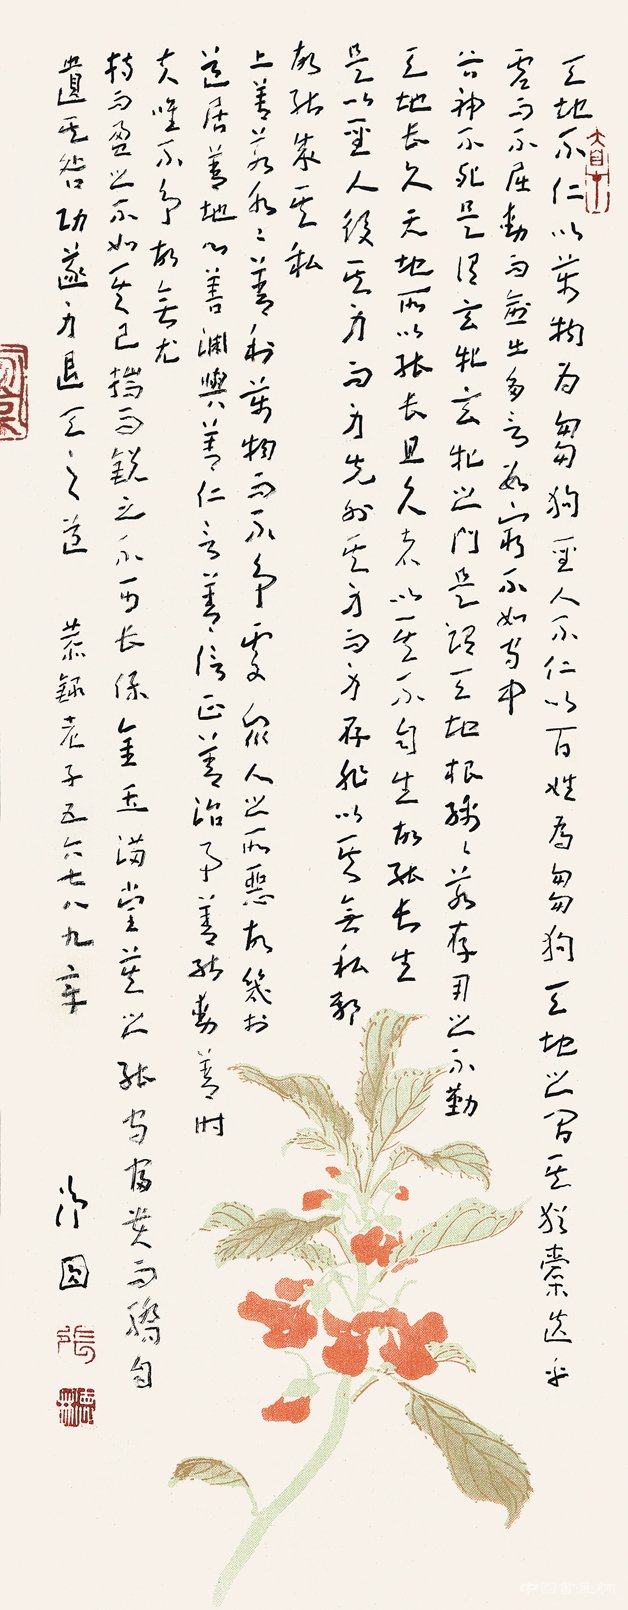 天地不仁以萬物為芻狗聖人不仁以百姓為芻狗天地之間其猶橐乎
虛而不屈動而愈出多言數窮不如守中
谷神不死是謂玄牝玄牝之門是謂天地根綿々若存用之不勤
天地長久天地所以能長且久者以其不自生故能長生
是以聖人後其身而身先外其身而身存非以其無私邪
故能成其私
上善若水々善利萬物而不爭處眾人之所惡故幾於
道居善地心善淵與善仁言善信正善治事善能動善時
夫唯不爭故無尤
持而盈之不如其已揣而銳之不可長保金玉滿堂莫之能守富貴而驕自
遺其咎功遂身退天之道 恭錄老子五六七八九章
張